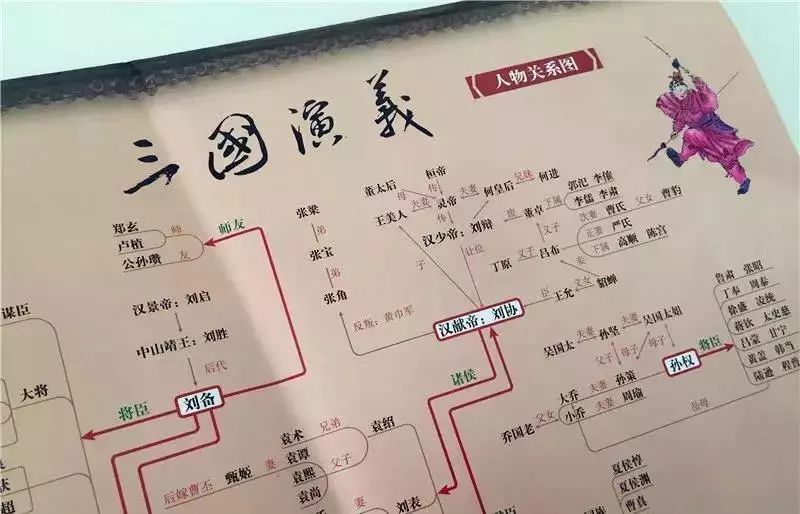 三國演義
人物关系图
桓帝
董太后 母 传
灵帝 夫妻 何皇后 兄妹 何进
王美人 夫妻 传
郭汜 李傕
李儒 李肃
汉少帝：刘辩 废 董卓 下属
次妻 曹氏 父女 曹豹
正妻 严氏
下属 高顺 陈宫
父子
丁原 义子 吕布
妾
子 让位
臣 王允 义女 貂蝉
张梁
弟
张宝
弟
张角
反叛：黄巾军
汉献帝：刘协
郑玄
卢植 师
公孙瓒 友
师友
汉景帝：刘启
中山靖王：刘胜
后代
刘备
将臣
谋臣
大将
超
诸侯
吴国太 夫妻 孙坚 夫妻 吴国太姐
父子 母子 母子
孙权
将臣
鲁肃 张昭
丁奉 周泰
徐盛 凌统
蒋钦 太史慈
吕蒙 甘宁
黄盖 韩当
陆逊 程普
大乔 夫妻 孙策
乔国老 父女 小乔 夫妻 周瑜
岳母
袁术 兄弟 袁绍
后嫁曹丕 甄姬 妻 袁谭
袁熙 父子
袁尚
妻 刘表
夏侯惇
夏侯渊
曹真